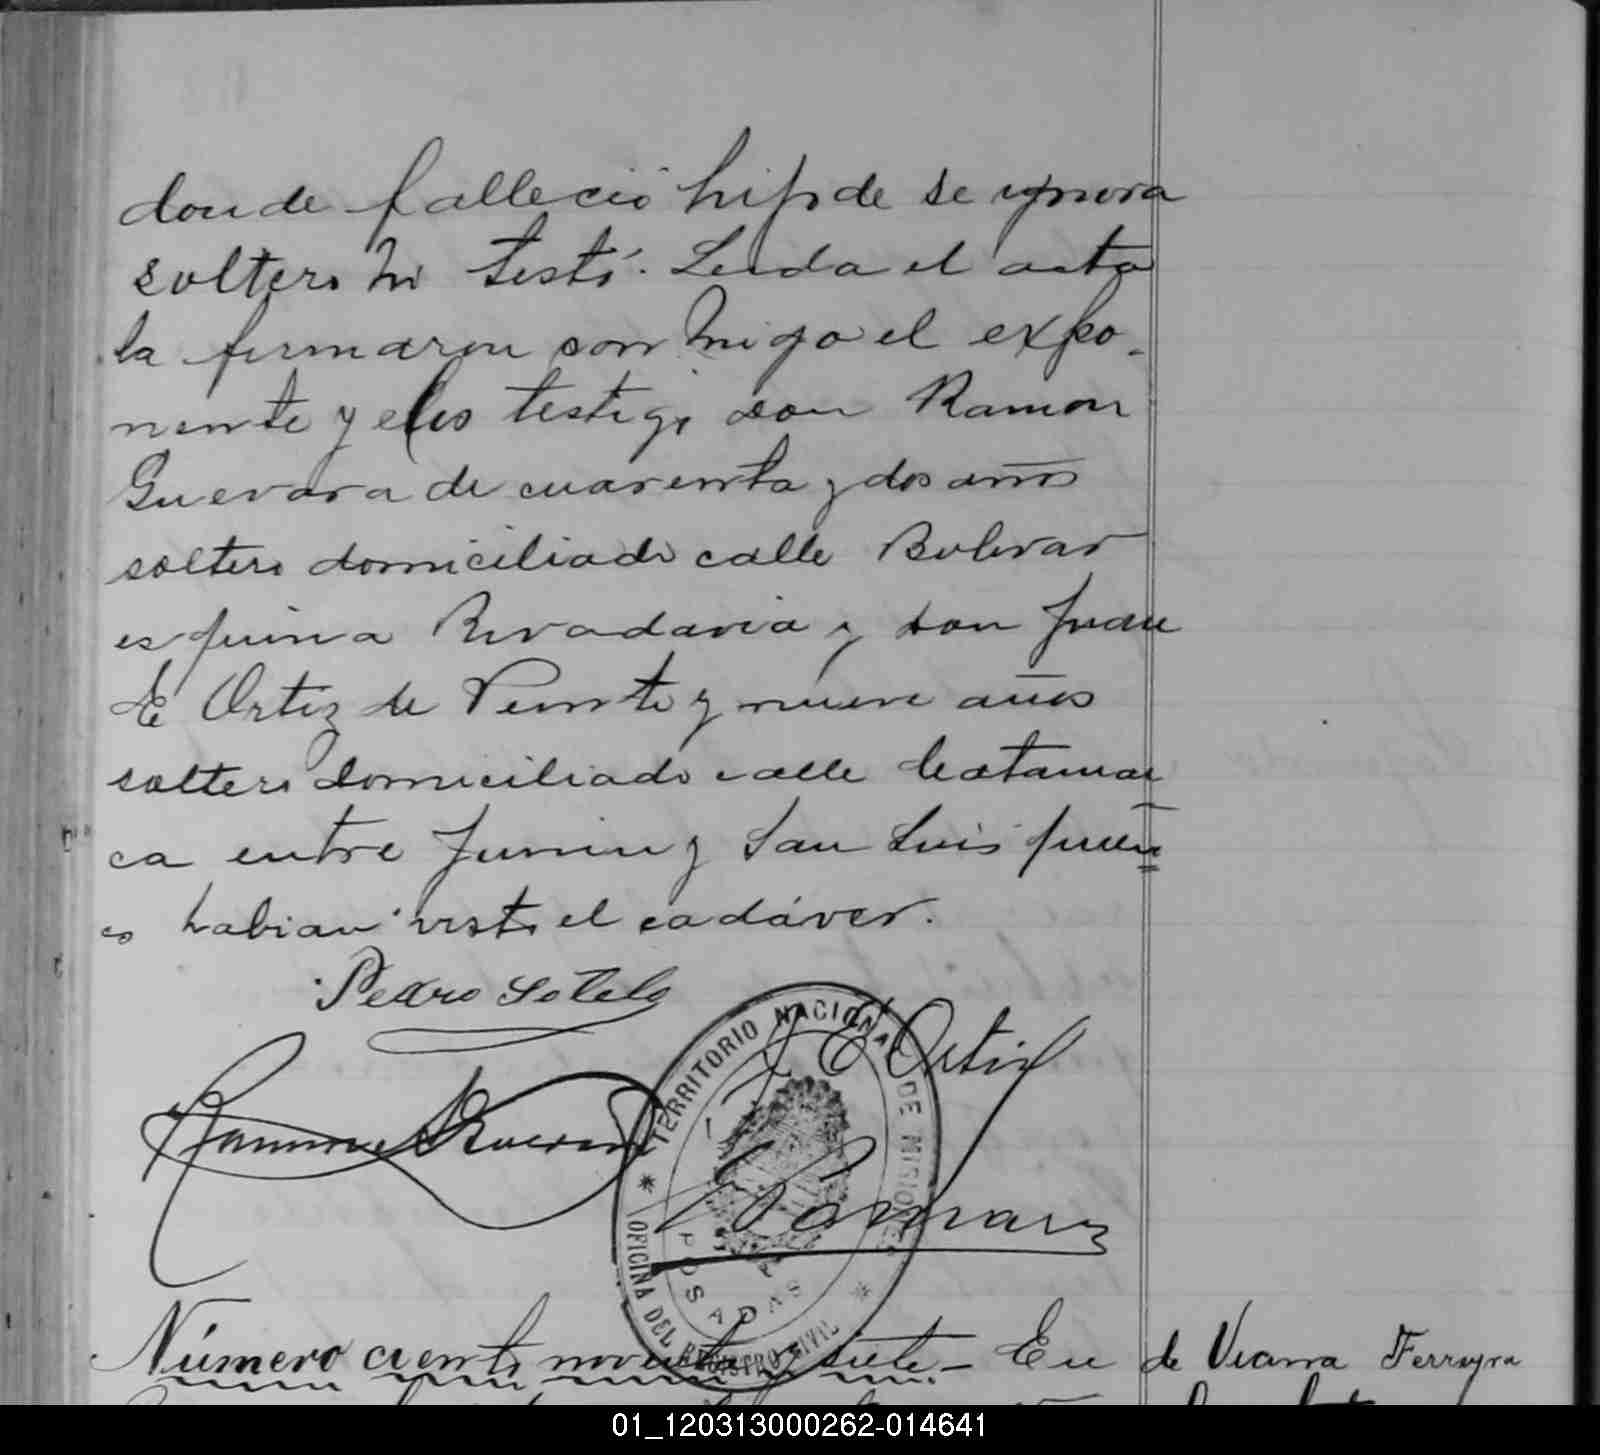 donde falleció hijo de se ignora
soltero no testó. Leida el acta
la firmaron conmigo el expo-
nente y los testigo don Ramon
Guevara de cuarenta y dos años
soltero domiciliado calle Bolivar
esquina Rivadavia y don Juan
E Ortiz de Veinte y nueve años
soltero domiciliado calle Catamar
ca entre Junin y San Luis quien
es habian visto el cadáver.
Pedro Sotelo
J E Ortiz
Ramon Guevara
TERRITORIO NACIONAL DE MISIONES
POSADAS
OFICINA DEL REGISTRO CIVIL
Número ciento noventa y siete - En
de Viana Ferreyra
01_120313000262-014641